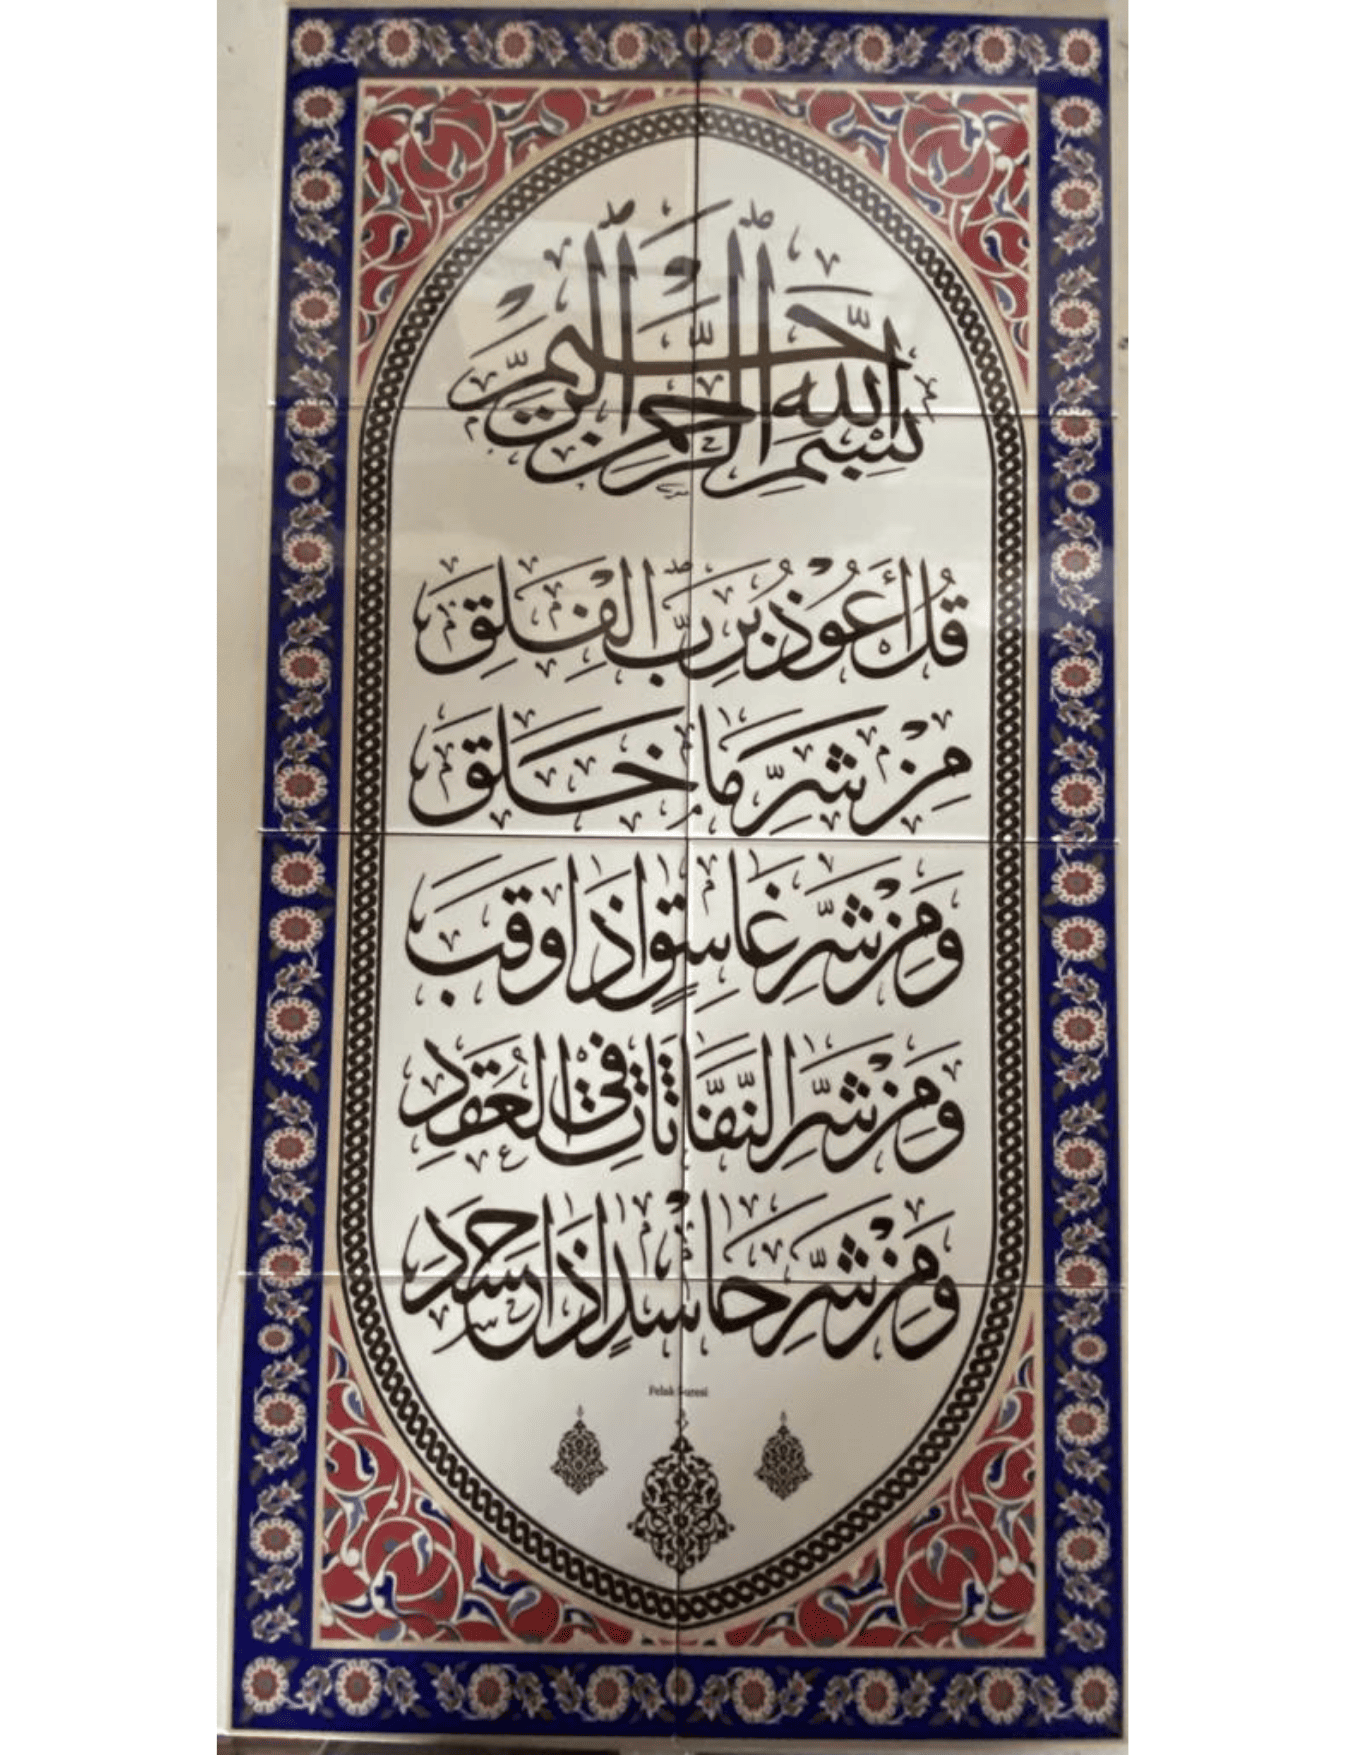 بِسْمِ اللهِ الرَّحْمٰنِ الرَّحِيمِ
قُلْ أَعُوذُ بِرَبِّ الْفَلَقِ
مِنْ شَرِّ مَا خَلَقَ
وَمِنْ شَرِّ غَاسِقٍ إِذَا وَقَبَ
وَمِنْ شَرِّ النَّفَّاثَاتِ فِي الْعُقَدِ
وَمِنْ شَرِّ حَاسِدٍ إِذَا حَسَدَ
Felak Suresi